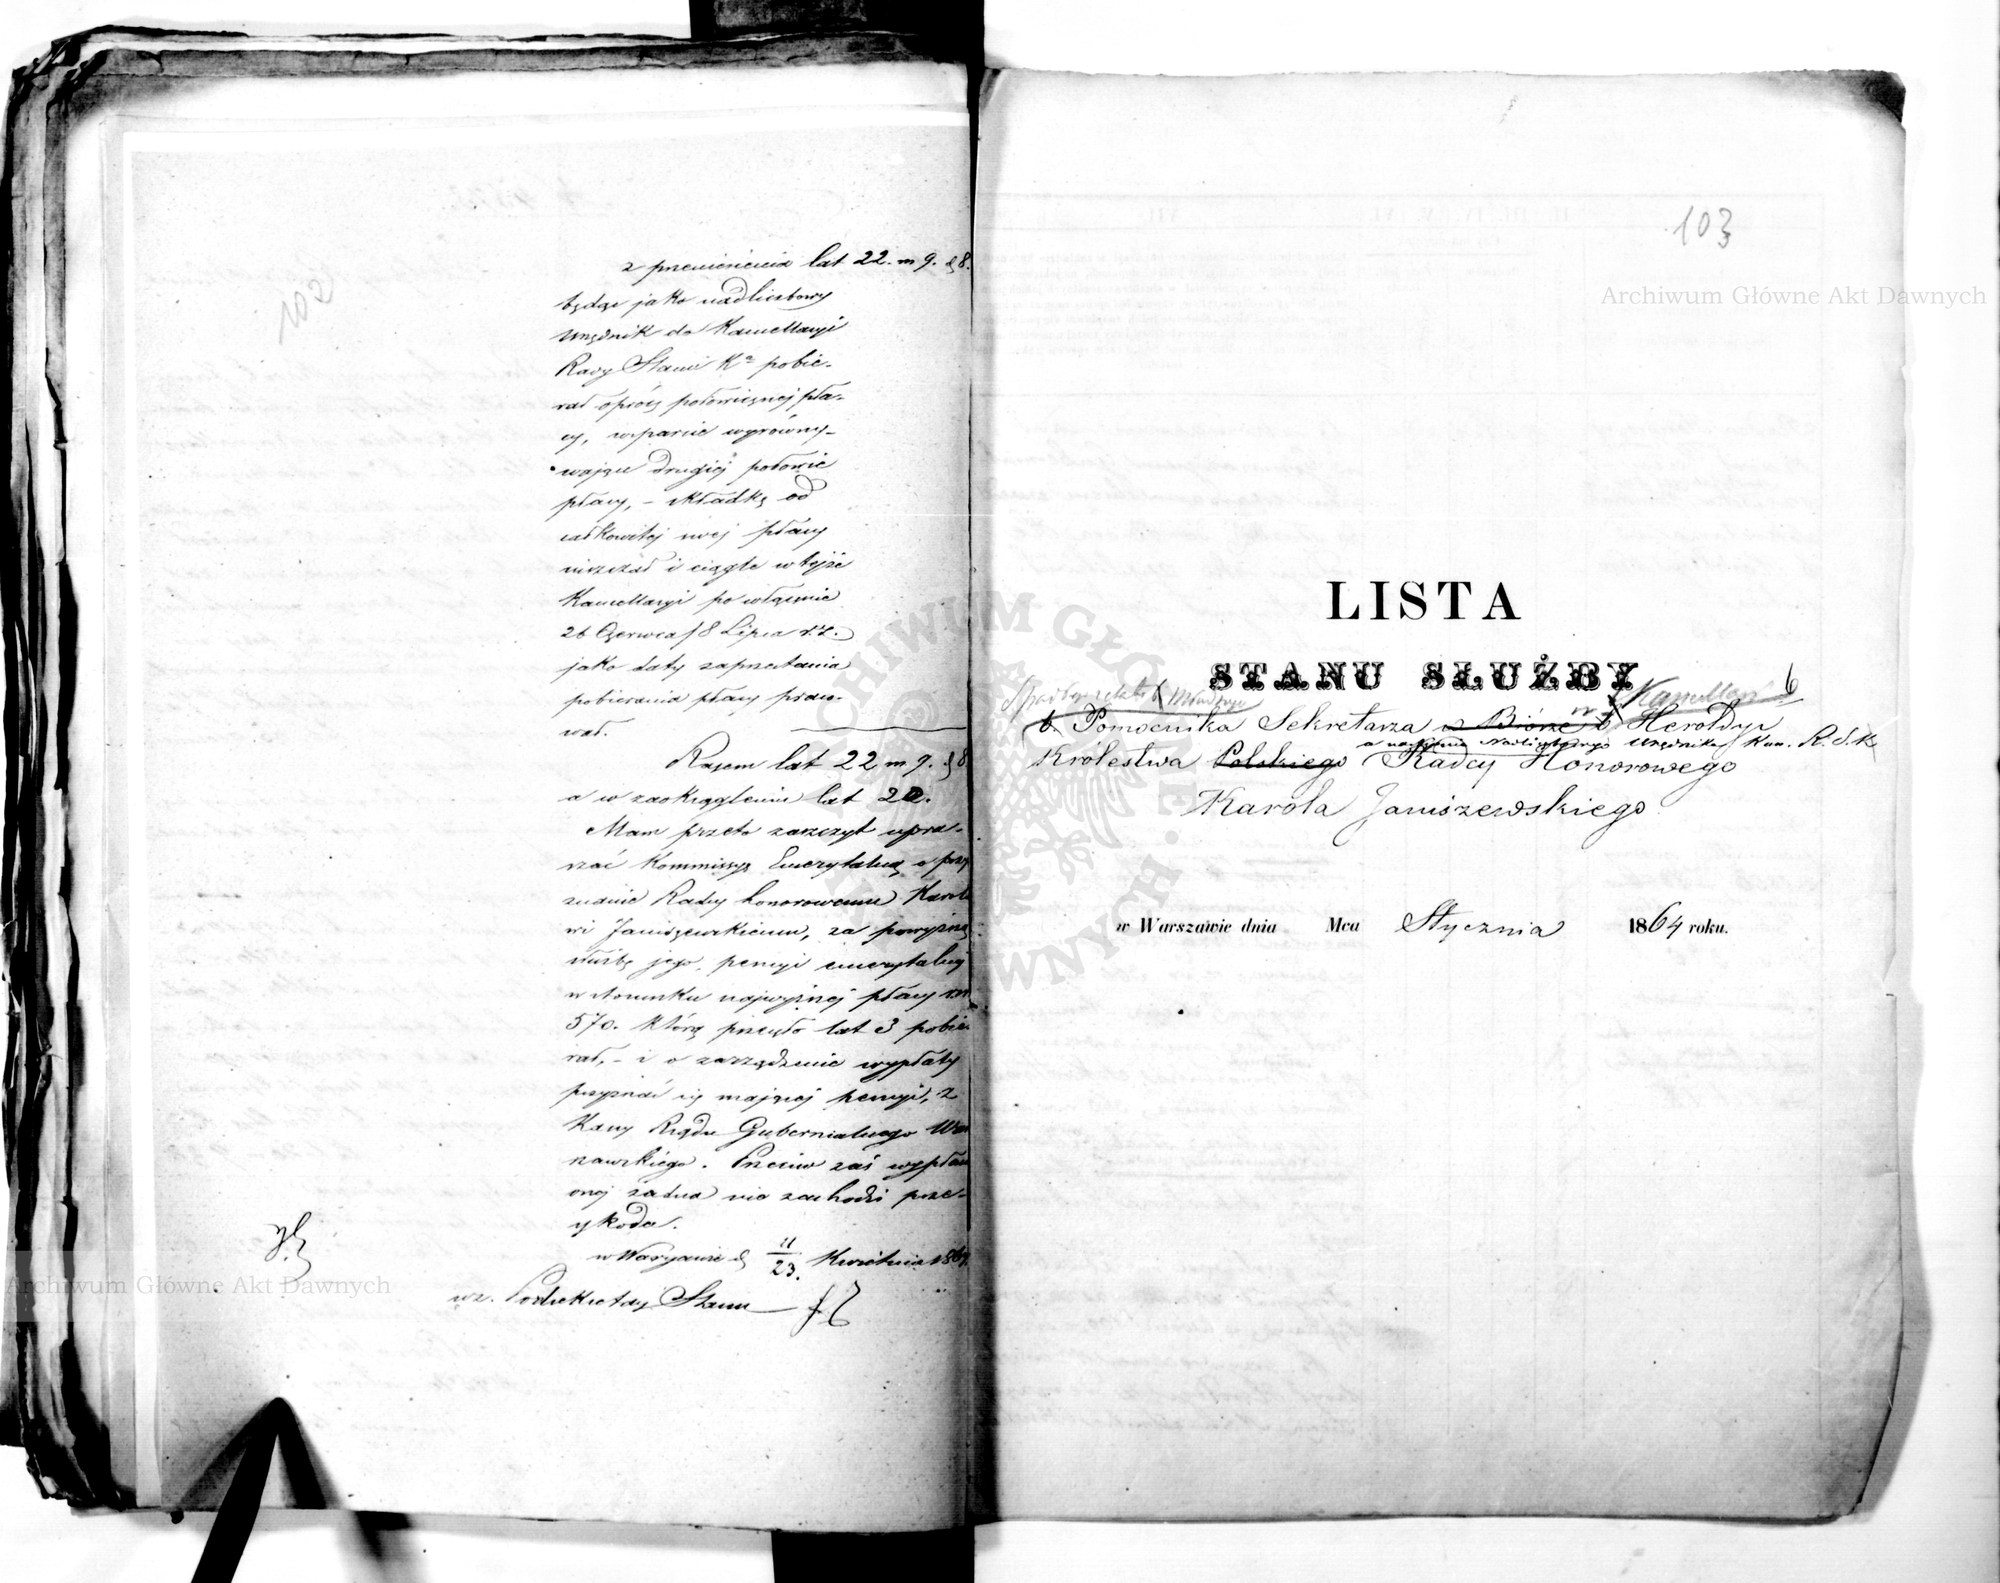 102
z przeniesienia lat 22. m 9. d 8.
będąc jako nadliczbowy
urzędnik do Kancellaryi
Rady Stanu Kr. pobie-
rał oprócz połowicznej pła-
cy, wsparcie wyrówny-
wające drugiej połowie
płacy, – składkę od
całkowitej swej płacy
uiszczał i ciągle w tejże
Kancellaryi po włącznie
26 Czerwca / 8 Lipca r.z.
jako daty zaprzestania
pobierania płacy praco-
wał.
Razem lat 22 m 9. d 8
a w zaokrągleniu lat 22.
Mam przeto zaszczyt upra-
szać Kommissyę Emerytalną o przy
znanie Radcy honorowemu Karolo
wi Janiszewskiemu, za powyższą
służbę jego, pensyi emerytalnej
w stosunku najwyższej płacy rsr
570. którą przeszło lat 3 pobie
rał, – i o zarządzenie wypłaty
przyznać się mającej pensyi, z
Kassy Rządu Gubernialnego War
szawskiego. Przeciw zaś wypłacie
onej żadna nie zachodzi prze-
szkoda.
w Warszawie d 11/23. Kwietnia 186
wz. Podsekretarz Stanu
103
Archiwum Główne Akt Dawnych
LISTA
STANU SŁUŻBY
Młodszego Kancellaryi
b. Pomocnika Sekretarza w Biórze b Heroldyi
a następnie Nadliczbowego Urzędnika Kan. R. S. K
Królestwa Polskiego Radcy Honorowego
Karola Janiszewskiego
w Warszawie dnia Mca Stycznia 1864 roku.
ARCHIWUM GŁÓWNE AKT DAWNYCH
Archiwum Główne Akt Dawnych